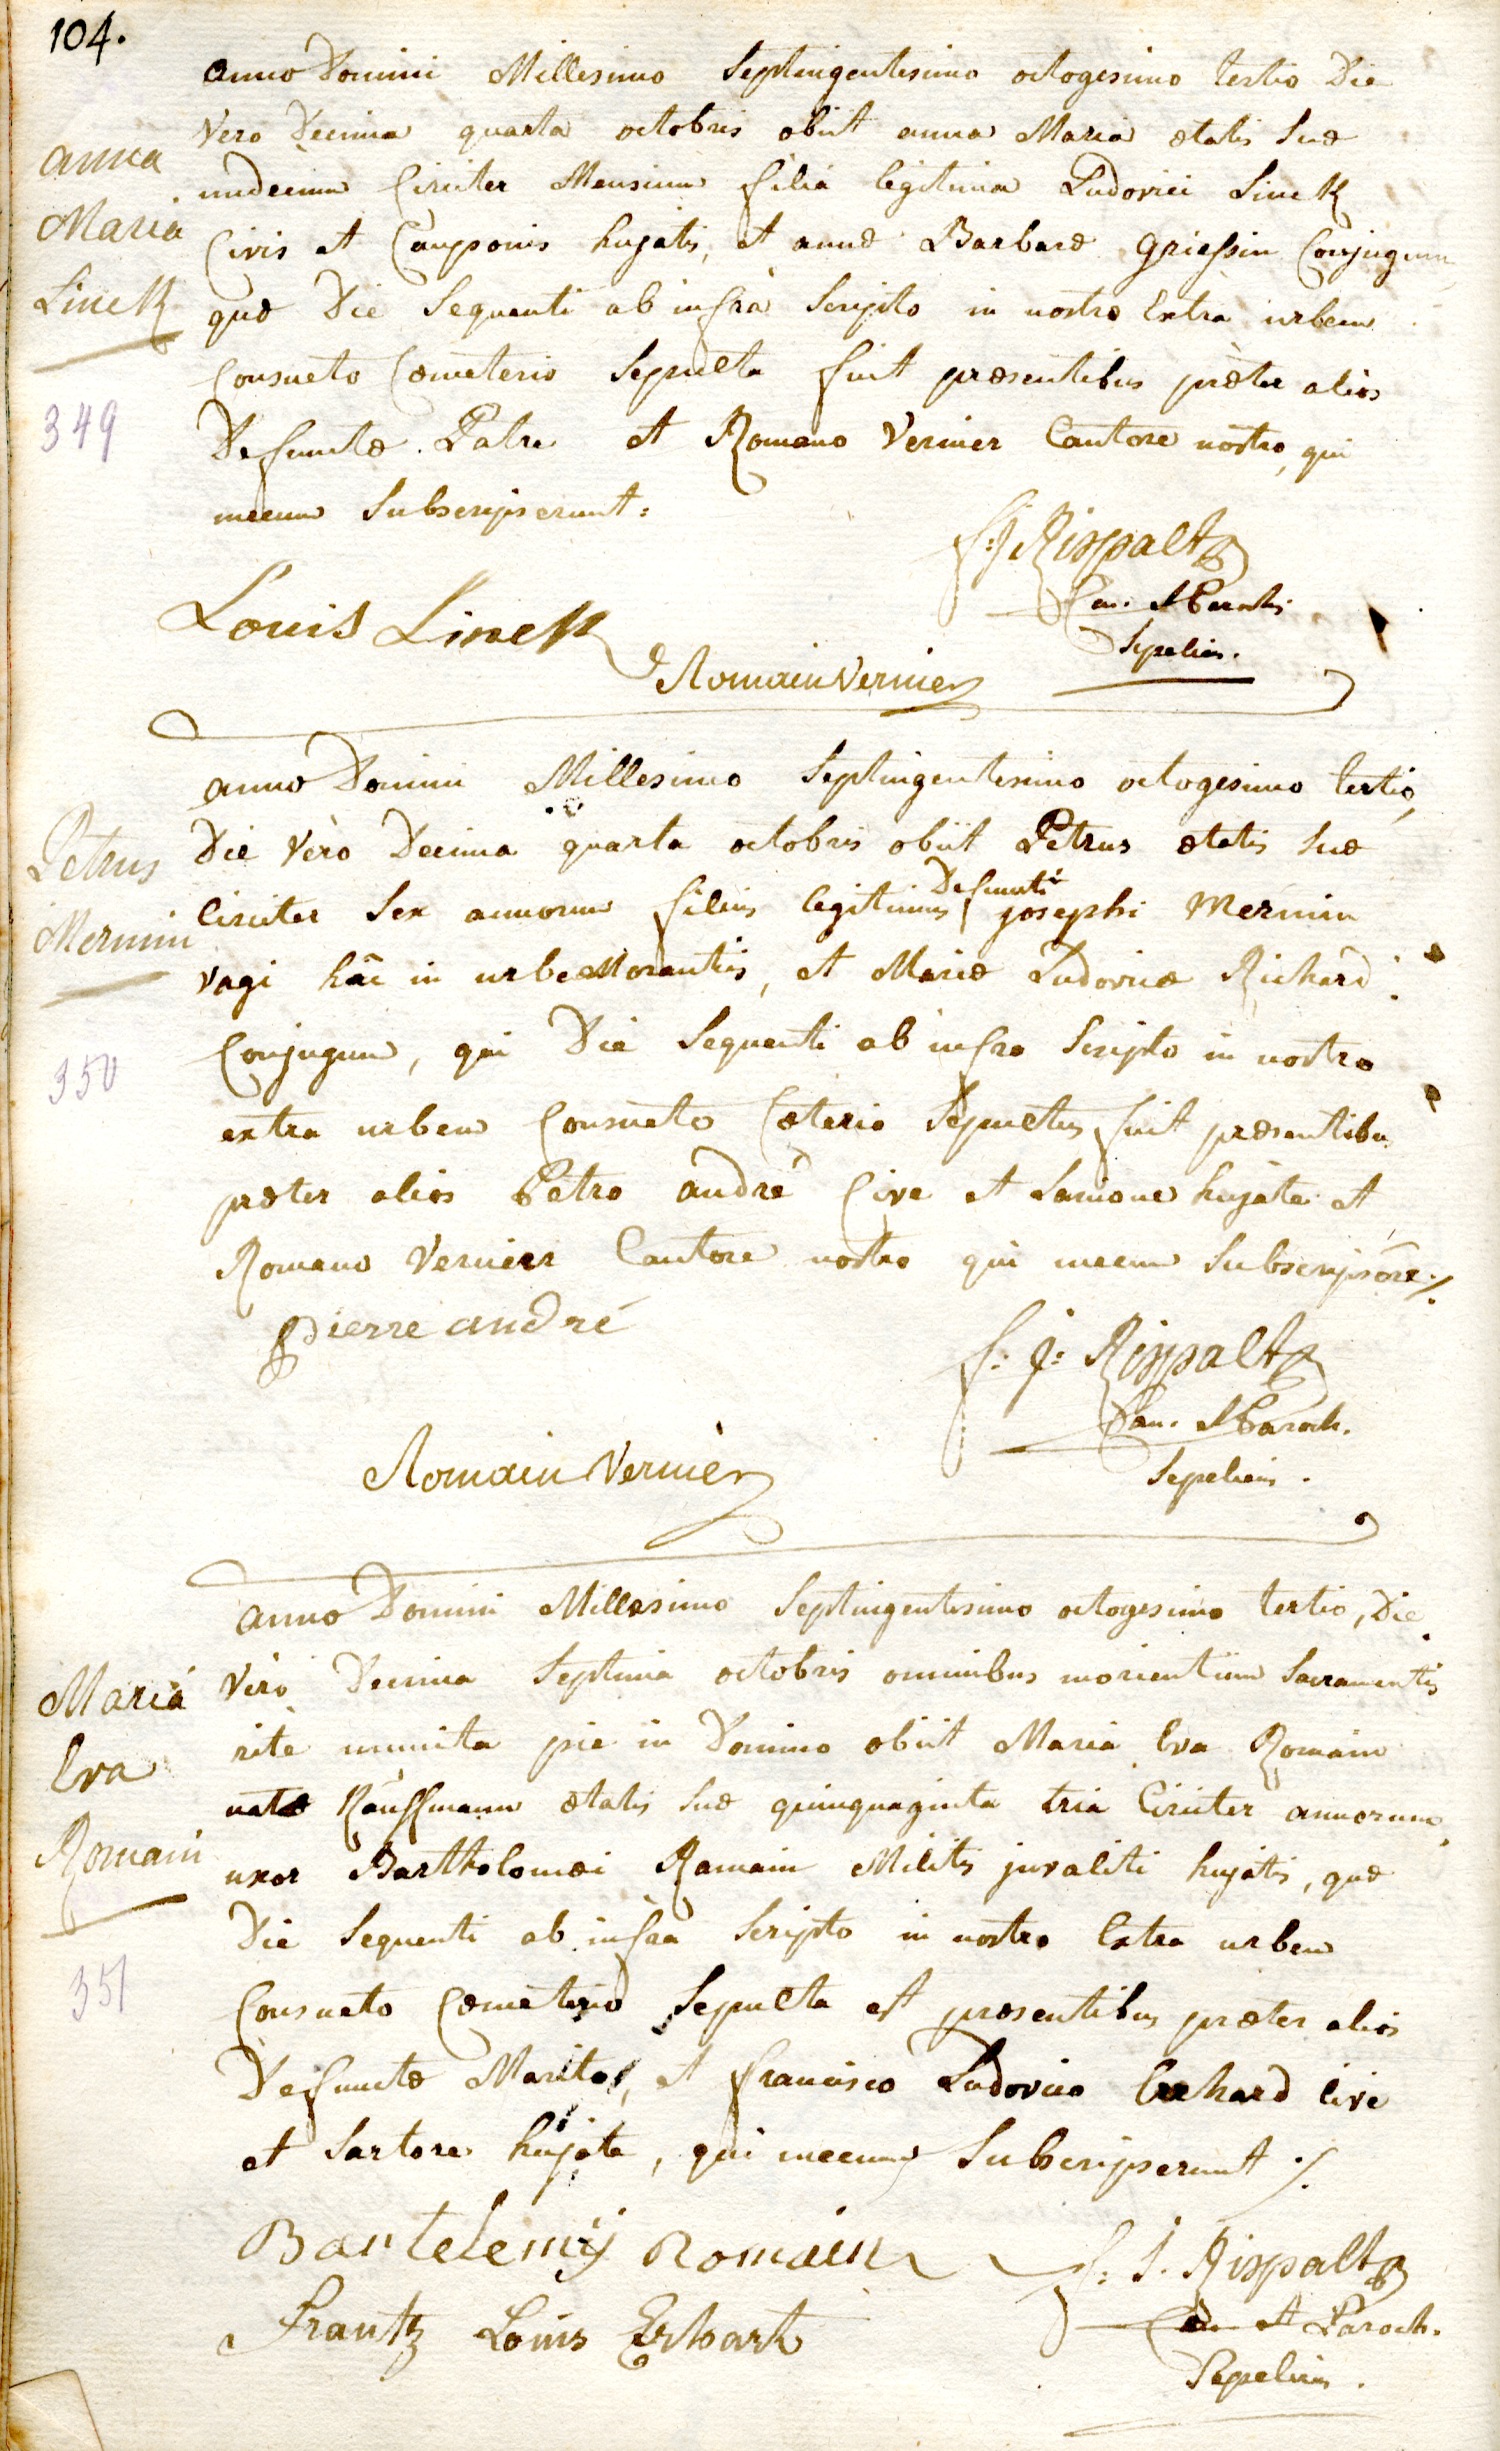 104.
anno Domini Millesimo Septingentesimo octogesimo tertio Die
Vero Decima quarta octobris obiit anna Maria ætatis suæ
undecim Circiter Mensium filia legitima Ludovici Linck
Civis et Cauponis hujatis, et annæ Barbaræ Griessin Conjugum
quæ Die Sequenti ab infrà Scripto in nostro Extra urbem
Consueto Cœmeterio Sepulta fuit præsentibus præter alios
Defunctæ Patre et Romano Vernier Cantore nostro, qui
mecum Subscripserunt:
anna
Maria
Linck
349
F: J Rispalt
Can. et Paroch
Sepelien.
Louis Linck
Romain Vernier
anno Domini Millesimo Septingentesimo octogesimo tertio,
Die Verò Decima quarta octobris obiit Petrus ætatis suæ
Circiter Sex annorum filius legitimus Defuncti josephi Mermin
vagi hâc in urbe Morantis, et Mariæ Ludovicæ Richard
Conjugum, qui Die Sequenti ab infra Scripto in nostro
extra urbem Consueto Cœterio Sepultus fuit præsentibu
præter alios Petro andrè Cive et Lanione hujate et
Romano Vernier Cantore nostro qui mecum Subscripsêre ./.
Petrus
Mermin
350
pierre andré
F: J: Rispalt
Can. et Paroch.
Sepeliens.
Romain Vernier
anno Domini Millesimo Septingentesimo octogesimo tertio, Die
Vèrò Decima Septima octobris omnibus morientium Sacramentis
ritè munita pie in Domino obiit Maria Eva Romain
natæ Kauffmann ætatis suæ quinquaginta tria Circiter annorum,
uxor Barttholomæi Romain Militis juvaliti hujatis, quæ
Die Sequenti ab infra Scripto in nostro Extra urbem
Consueto Cœmeterio Sepulta est præsentibus præter alios
Defunctæ Marito, et francisco Ludovico Erhard Cive
et Sartore hujate, qui mecum Subscripserunt ./.
Maria
Eva
Romain
351
Bartelemÿ Romain
F: J. Rispalt
Can. et Paroch.
Sepeliens.
Frantz Louis Erhart